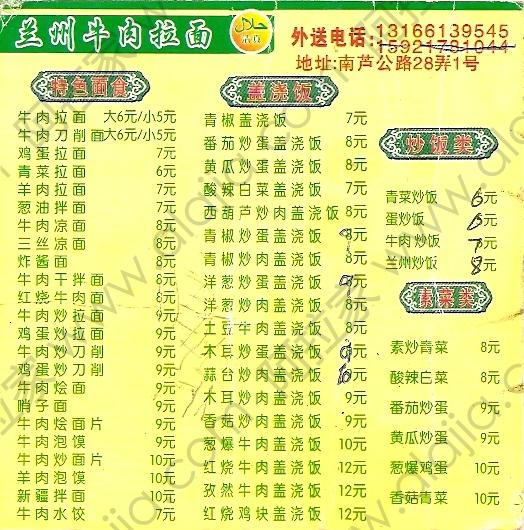 兰州牛肉拉面
حلال
清真
外送电话:13166139545
15921781044
地址:南芦公路28弄1号
特色面食
牛肉拉面 大6元/小5元
牛肉刀削面 大6元/小5元
鸡蛋拉面 7元
青菜拉面 6元
羊肉拉面 7元
葱油拌面 7元
牛肉凉面 8元
三丝凉面 8元
炸酱面 8元
牛肉干拌面 8元
红烧牛肉面 8元
牛肉炒拉面 9元
鸡蛋炒拉面 9元
牛肉炒刀削 9元
鸡蛋炒刀削 9元
牛肉烩面 9元
哨子面 9元
牛肉烩面片 9元
牛肉泡馍 9元
牛肉炒面片 10元
羊肉泡馍 10元
新疆拌面 10元
牛肉水饺 7元
盖浇饭
青椒盖浇饭 7元
番茄炒蛋盖浇饭 8元
黄瓜炒蛋盖浇饭 8元
酸辣白菜盖浇饭 7元
西葫芦炒肉盖浇饭 8元
青椒炒蛋盖浇饭 9元
青椒炒肉盖浇饭 8元
洋葱炒蛋盖浇饭 9元
洋葱炒肉盖浇饭 8元
土豆牛肉盖浇饭 8元
木耳炒蛋盖浇饭 9元
蒜台炒肉盖浇饭 元
木耳炒肉盖浇饭 9元
香菇炒肉盖浇饭 9元
葱爆牛肉盖浇饭 10元
红烧牛肉盖浇饭 12元
孜然牛肉盖浇饭 12元
红烧鸡块盖浇饭 12元
炒饭类
青菜炒饭 6元
蛋炒饭 6元
牛肉炒饭 7元
兰州炒饭 8元
素菜类
素炒青菜 8元
酸辣白菜 8元
番茄炒蛋 9元
黄瓜炒蛋 9元
葱爆鸡蛋 10元
香菇青菜 10元